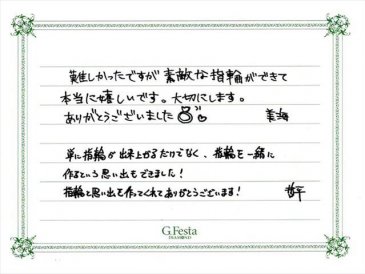 難しかったですが素敵な指輪ができて
本当に嬉しいです。大切にします。
ありがとうございました
美海
単に指輪が出来上がるだけでなく、指輪を一緒に
作るという思い出もできました！
指輪と思い出を作ってくれてありがとうございます！
G.Festa
DIAMOND